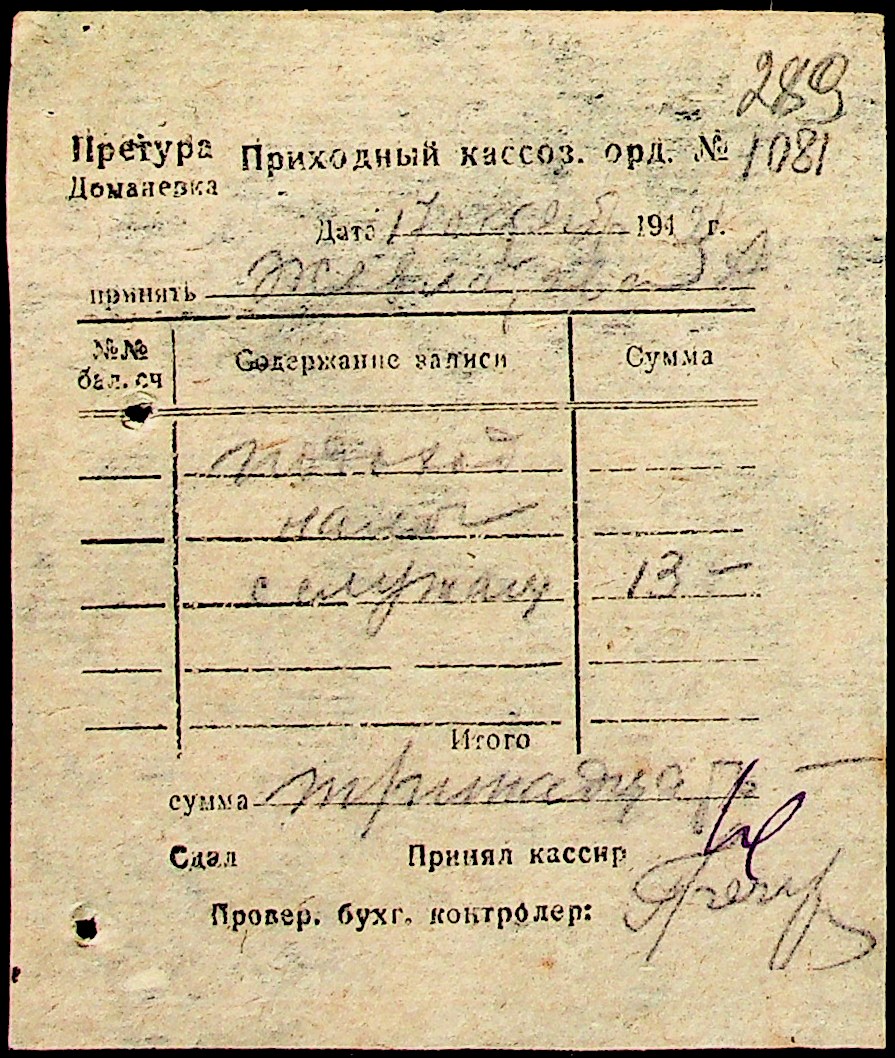 289
Претура Приходный кассов. орд. № 1081
Доманевка
Дата 17 194 г.
принять
№№ бал. сч Содержание записи Сумма
налог
с служащ 13 –
Итого
сумма тринадцать –
Сдал Принял кассир
Провер. бухг. контролер: